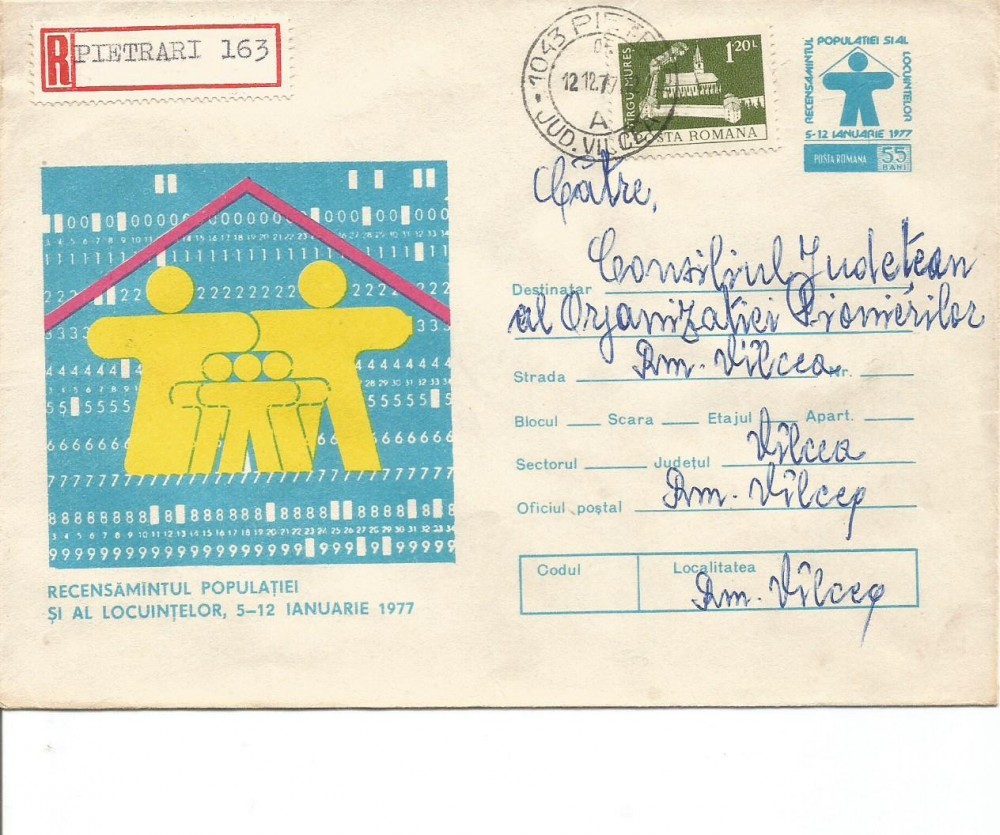 R PIETRARI 163
1043 PIETR
12.12.77
A
JUD. VILCEA
TÎRGU MUREȘ
1·20 L
POSTA ROMANA
RECENSĂMÎNTUL POPULAȚIEI ȘI AL LOCUINȚELOR
5-12 IANUARIE 1977
POSTA ROMANA 55 BANI
Către,
Destinatar Consiliul Judetean
al Organizatiei Pionierilor
Strada Rm. Vîlcea Nr.
Blocul Scara Etajul Apart.
Sectorul Județul Vîlcea
Oficiul poștal Rm. Vîlcea
Codul Localitatea
Rm. Vîlcea
RECENSĂMÎNTUL POPULAȚIEI
ȘI AL LOCUINȚELOR, 5–12 IANUARIE 1977